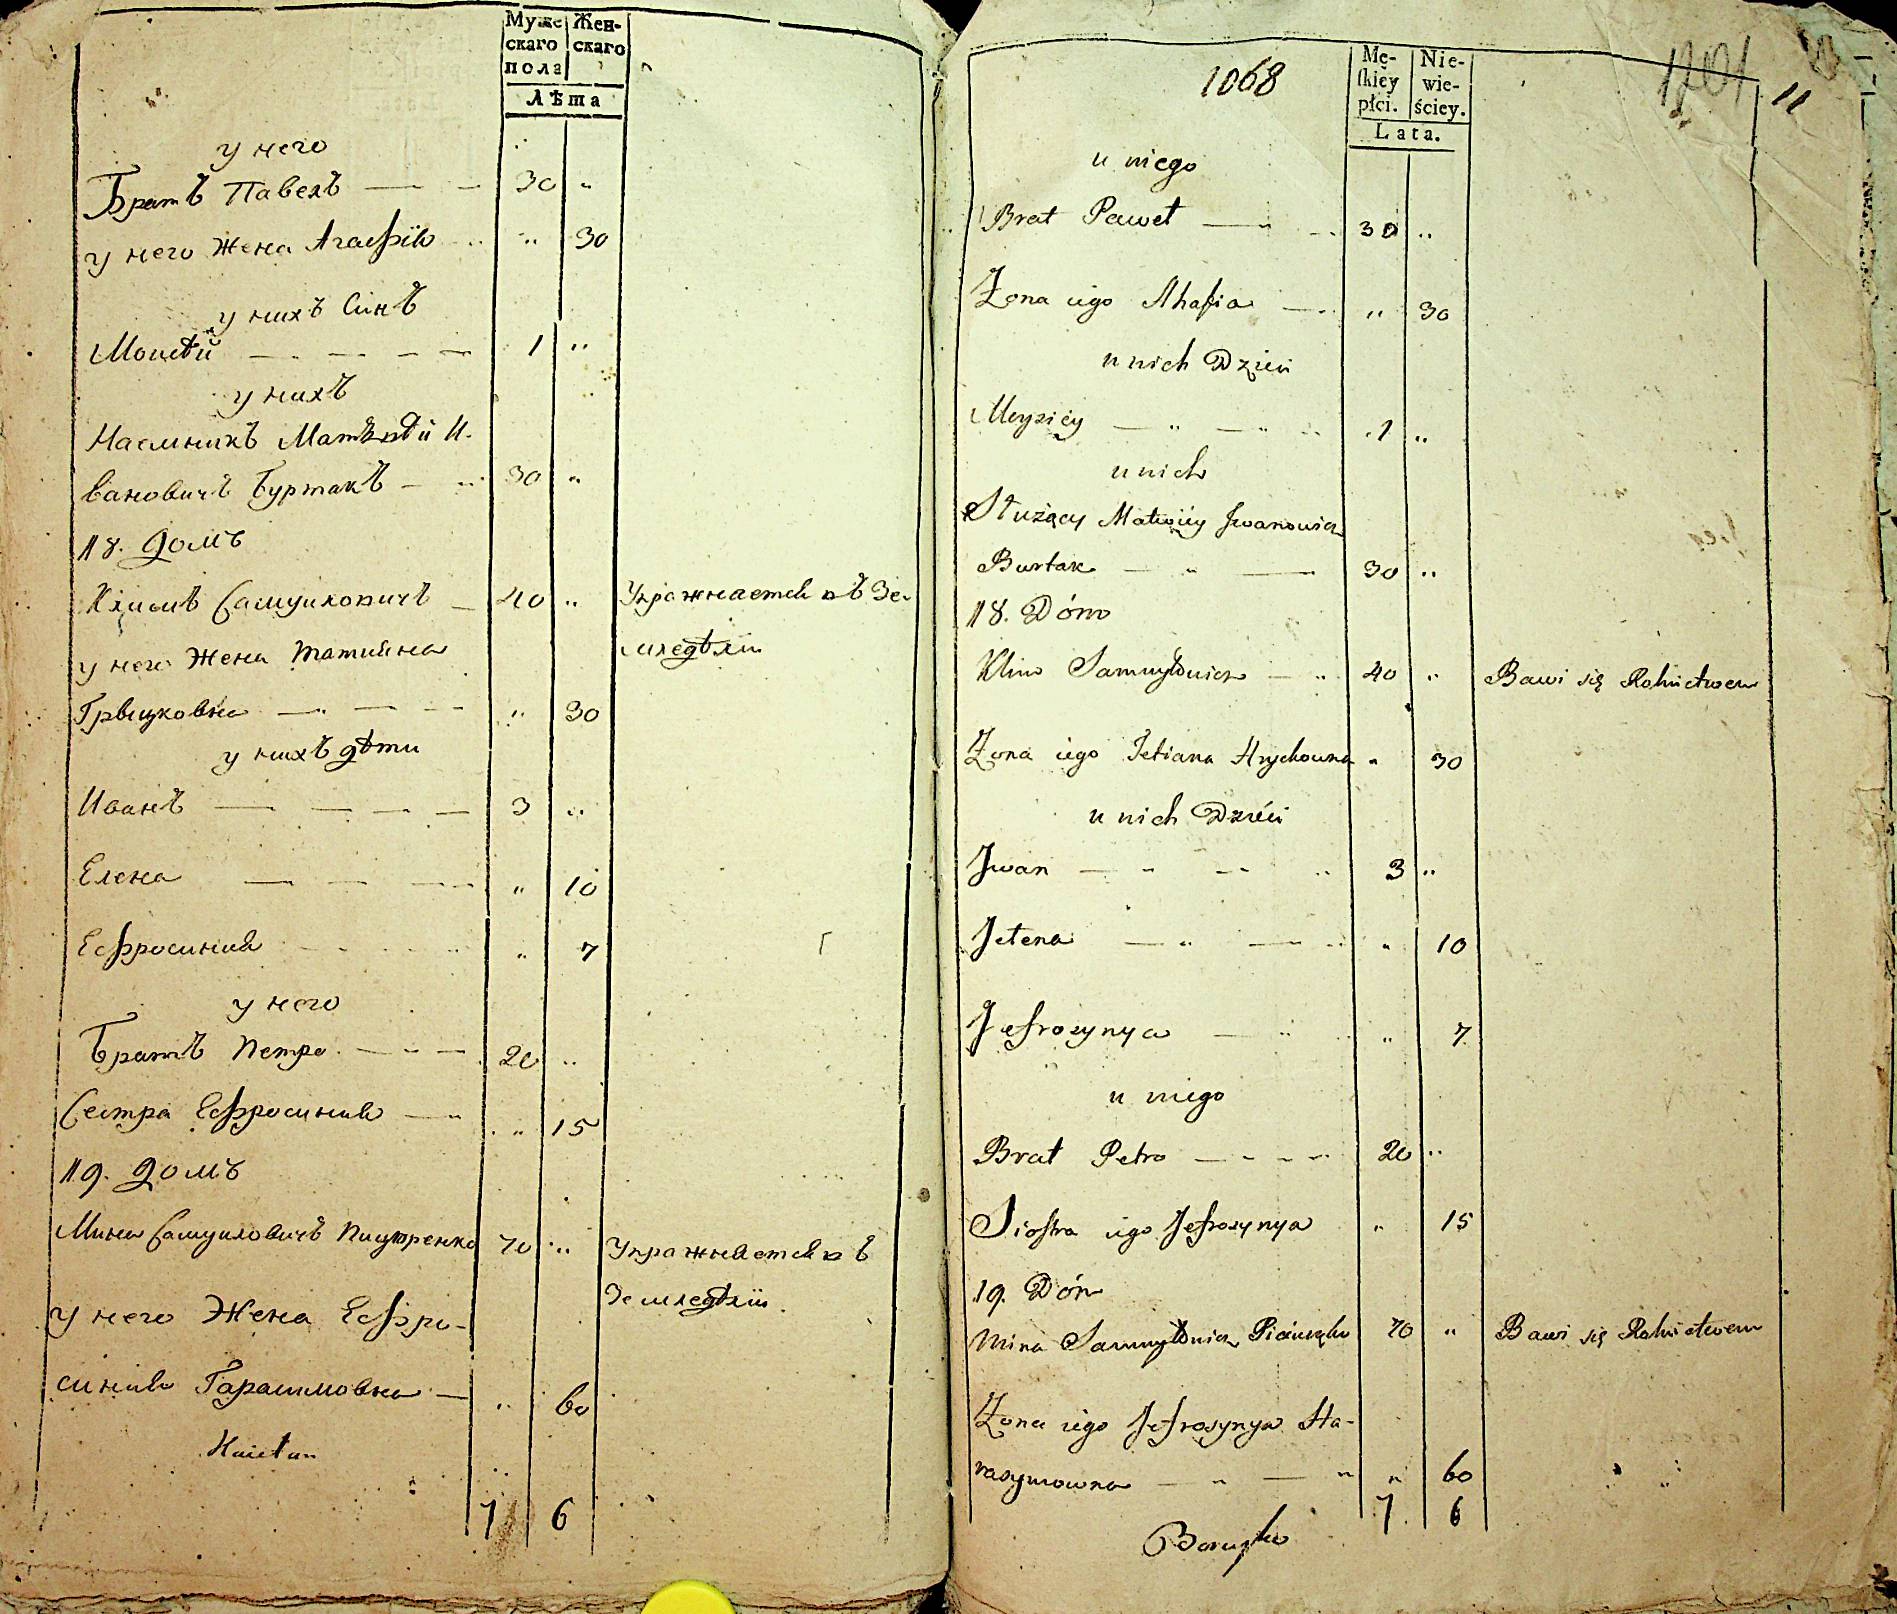 Муже
скаго
пола
Жен-
скаго
Лѣта
у него
Братъ Павелъ — — 30 "
у него Жена Агафія " 30
у нихъ Синъ
Моисѣй — — — — 1 "
у нихъ
Наемникъ Матвѣй И-
вановичъ Буртакъ — 30 "
18. Домъ
Климъ Самуиловичъ — 40 " Упражняется въ Зе-
мледѣліи
у него Жена Татияна
Грицковна — — — " 30
у нихъ дѣти
Иванъ — — — — 3 "
Елена — — — " 10
Ефросиния " 7
у него
Братъ Петро — — 20 "
Сестра Ефросиния — " 15
19. Домъ
Мина Самуиловичъ Пицюренко 70 " Упражняется въ
Земледѣліи
у него Жена Ефро-
синия Гарасимовна — " 60
7 6
1068
Mę-
skiey
płci.
Nie-
wie-
ściey.
Lata.
11
u niego
Brat Paweł — 30 "
Żona iego Ahafia — " 30
u nich Dzieci
Moysiéy — " — " 1 "
u nich
Służący Matwiéy Jwanowicz
Burtak — " — 30 "
18. Dóm
Klim Samuyłowicz — " 40 " Bawi się Rolnictwem
Żona iego Tetiana Hrychowna " 30
u nich Dzieci
Jwan — " — 3 "
Jełena — " — " 10
Jefrosynya — " " 7
u niego
Brat Petro — — — 20 "
Siostra iego Jefrosynya " 15
19. Dóm
Mina Samuyłowicz 70 " Bawi się Rolnictwem
Żona iego Jefrosynya Ha-
rasymowna — " — " " 60
7 6